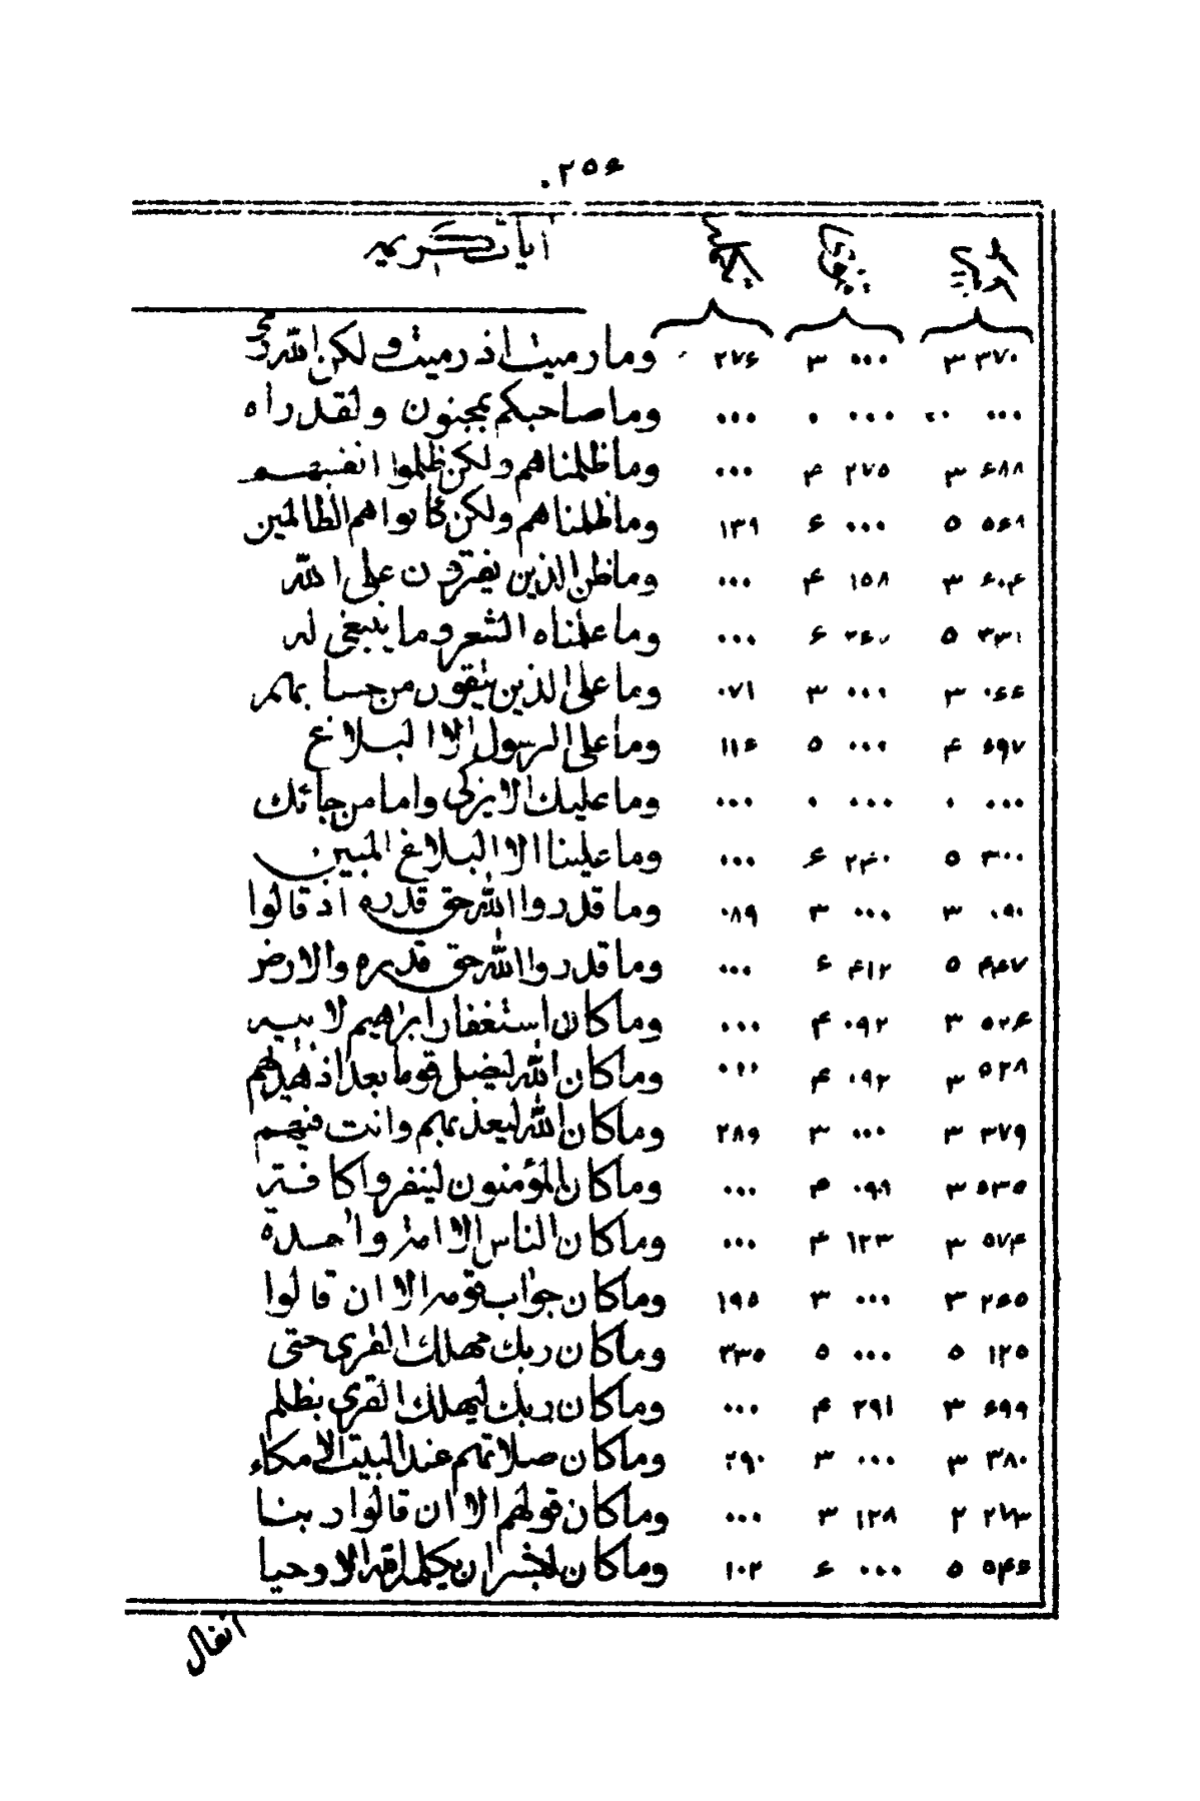 ٢٥۶
آيات كريمه
٣ ٣٧٠ ٣ ٠٠٠ ٢٧۶ وما رميت اذ رميت ولكن الله رمى
٠٠٠ ٠ ٠٠٠ ٠٠٠ وما صاحبكم بمجنون ولقد راه
٣ ۶٨٨ ۴ ٢٧٥ ٠٠٠ وما ظلمناهم ولكن ظلموا انفسهم
٥ ٥۶٩ ۶ ٠٠٠ ١٣٩ وما ظلمناهم ولكن كانوا هم الظالمين
٣ ۶٠۴ ۴ ١٥٨ ٠٠٠ وما ظن الذين يفترون على الله
٥ ٣٣١ ۶ ٠٠٠ وما علمناه الشعر وما ينبغى له
٣ ٠۶۶ ٣ ٠٠٠ ٠٧١ وما على الذين يتقون من حسابهم
۴ ۶٩٧ ٥ ٠٠٠ ١١۶ وما على الرسول الا البلاغ
٠ ٠٠٠ ٠ ٠٠٠ ٠٠٠ وما عليك الا يزكى واما من جائك
٥ ٣٠٠ ۶ ٢۴٠ ٠٠٠ وما علينا الا البلاغ المبين
٣ ٠٩٠ ٣ ٠٠٠ ٠٨٩ وما قدروا الله حق قدره اذ قالوا
٥ ۴۴٧ ۶ ۴١٢ ٠٠٠ وما قدروا الله حق قدره والارض
٣ ٥٢۶ ۴ ٠٩٢ ٠٠٠ وما كان استغفار ابراهيم لابيه
٣ ٥٢٨ ۴ ٠٩٢ ٠٠٠ وما كان الله ليضل قوما بعد اذ هديهم
٣ ٣٧٩ ٣ ٠٠٠ ٢٨٩ وما كان الله ليعذبهم وانت فيهم
٣ ٥٣٥ ۴ ٠٩٩ ٠٠٠ وما كان المؤمنون لينفروا كافة
٣ ٥٧۴ ۴ ١٢٣ ٠٠٠ وما كان الناس الا امة واحدة
٣ ٢۶٥ ٣ ٠٠٠ ١٩٥ وما كان جواب قومه الا ان قالوا
٥ ١٢٥ ٥ ٠٠٠ ٣٣٥ وما كان ربك مهلك القرى حتى
٣ ۶٩٩ ۴ ٢٩١ ٠٠٠ وما كان ربك ليهلك القرى بظلم
٣ ٣٨٠ ٣ ٠٠٠ ٢٩٠ وما كان صلاتهم عند البيت الا مكاء
٢ ٢٧٣ ٣ ١٢٨ ٠٠٠ وما كان قولهم الا ان قالوا ربنا
٥ ٥۴۶ ۶ ٠٠٠ ١٠٢ وما كان لبشر ان يكلمه الله الا وحيا
انفال